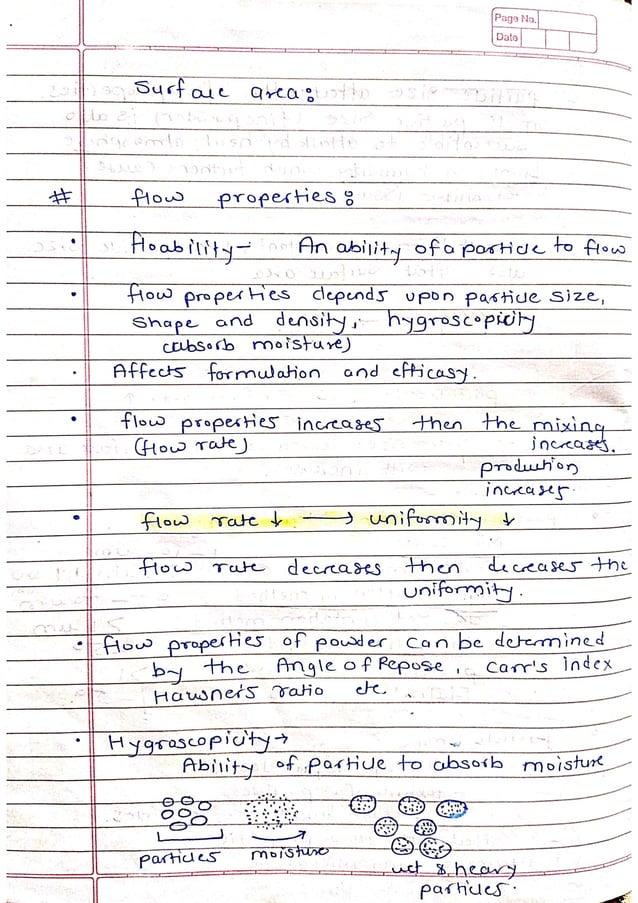 Page No.
Date
Surface area:
# flow properties:
• floability - An ability of a particle to flow
• flow properties depends upon particle size,
shape and density, hygroscopicity
(absorb moisture)
• Affects formulation and efficasy.
• flow properties increases then the mixing
(flow rate) increases.
production
increases.
• flow rate ↓ → uniformity ↓
flow rate decreases then decreases the
uniformity.
• flow properties of powder can be determined
by the Angle of Repose, Carr's index
Hawner's ratio etc.
• Hygroscopicity →
Ability of particle to absorb moisture
particles moisture
wet & heavy
particles.